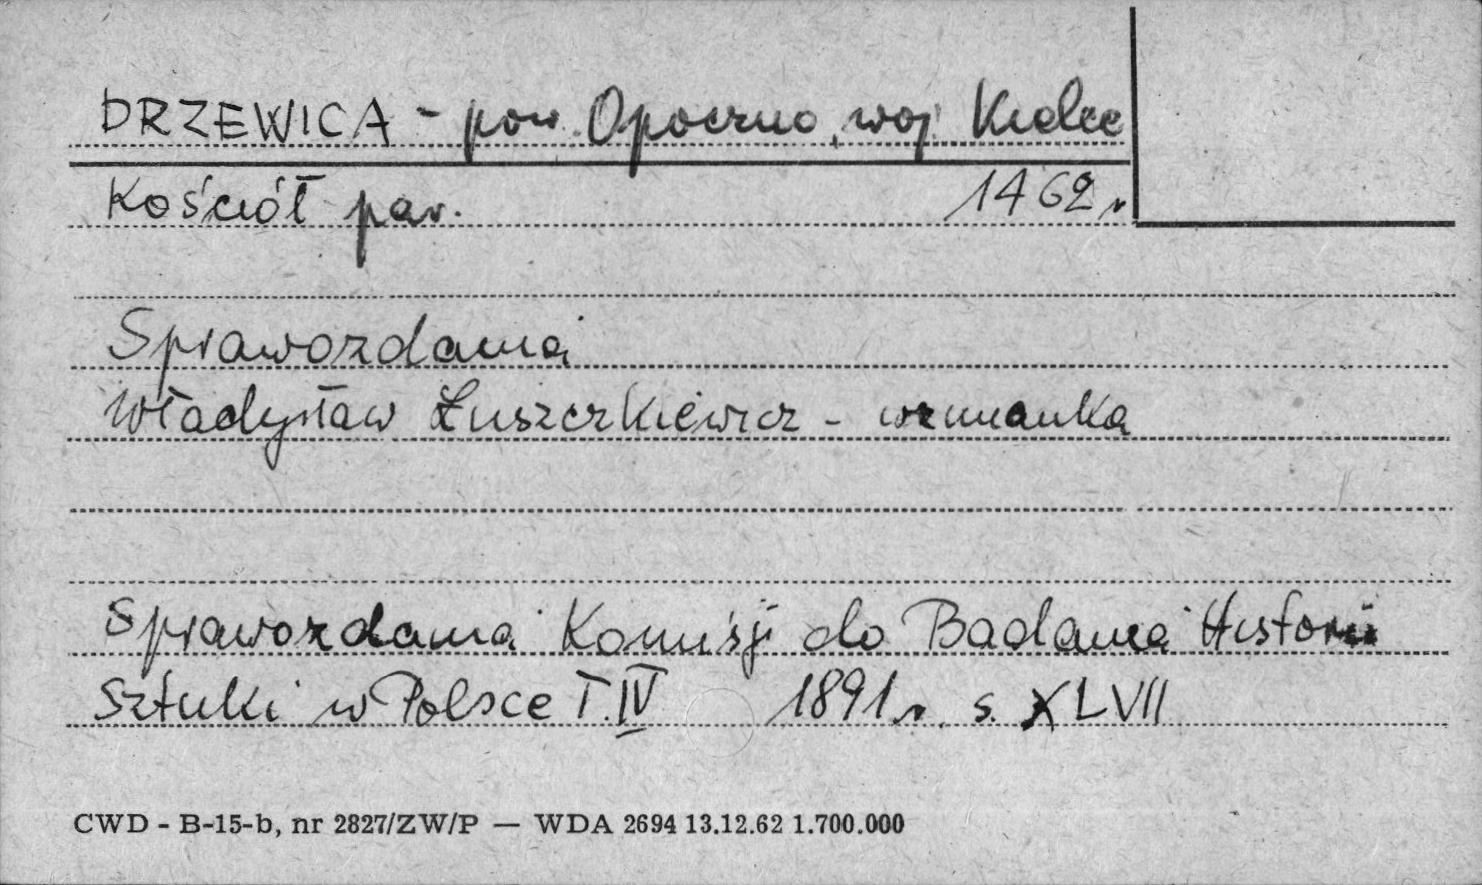 DRZEWICA - pow. Opoczno, woj. Kielce
Kościół par. 1462 r
Sprawozdania
Władysław Łuszczkiewicz - wzmianka
Sprawozdania Komisji do Badania Historii
Sztuki w Polsce T. IV 1891 r. s. XLVII
CWD - B-15-b, nr 2827/ZW/P — WDA 2694 13.12.62 1.700.000